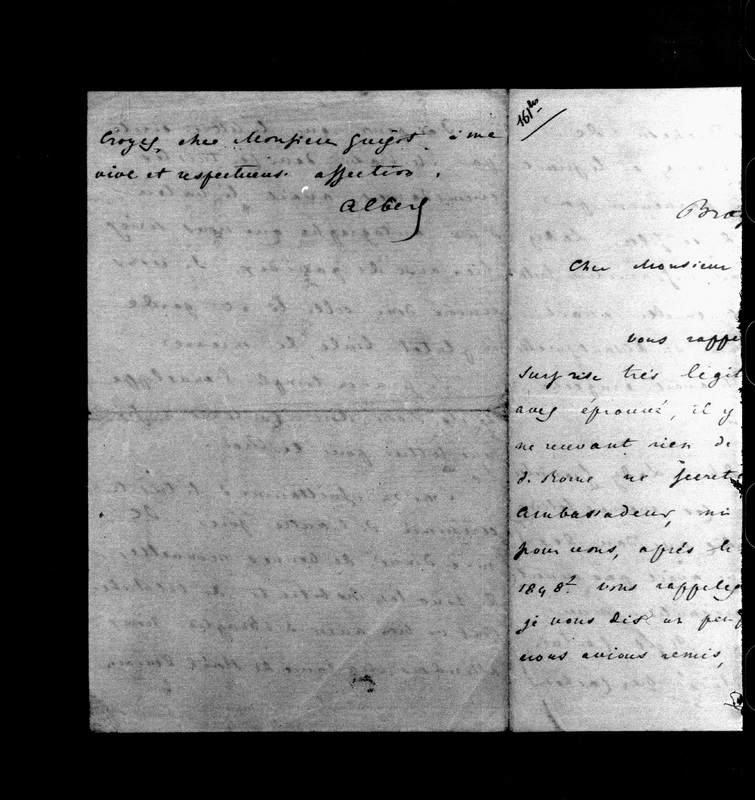 Croyez, cher Monsieur Guizot à ma
vive et respectueuse affection.
Albert
161 bis
Cher Monsieur
vous rappe
surprise très légit
avez éprouvé, il y
ne recevant rien de
de Rome ne secrét
ambassadeur, ni
pour vous, après le
1848? vous rappelez
je vous dis un peu
nous avions remis,